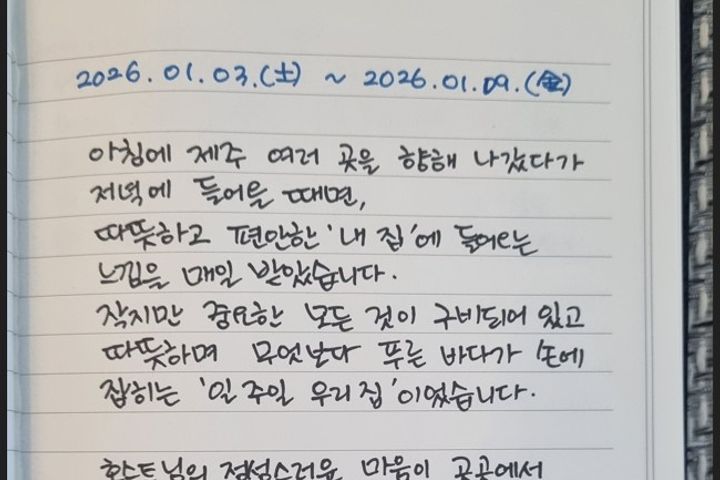 2026.01.03.(土) ~ 2026.01.09.(金)
아침에 제주 여러 곳을 향해 나갔다가
저녁에 들어올 때면,
따뜻하고 편안한 '내 집'에 들어오는
느낌을 매일 받았습니다.
작지만 중요한 모든 것이 구비되어 있고
따뜻하며 무엇보다 푸른 바다가 손에
잡히는 '일주일 우리집'이었습니다.
호스트님의 정성스러운 마음이 곳곳에서